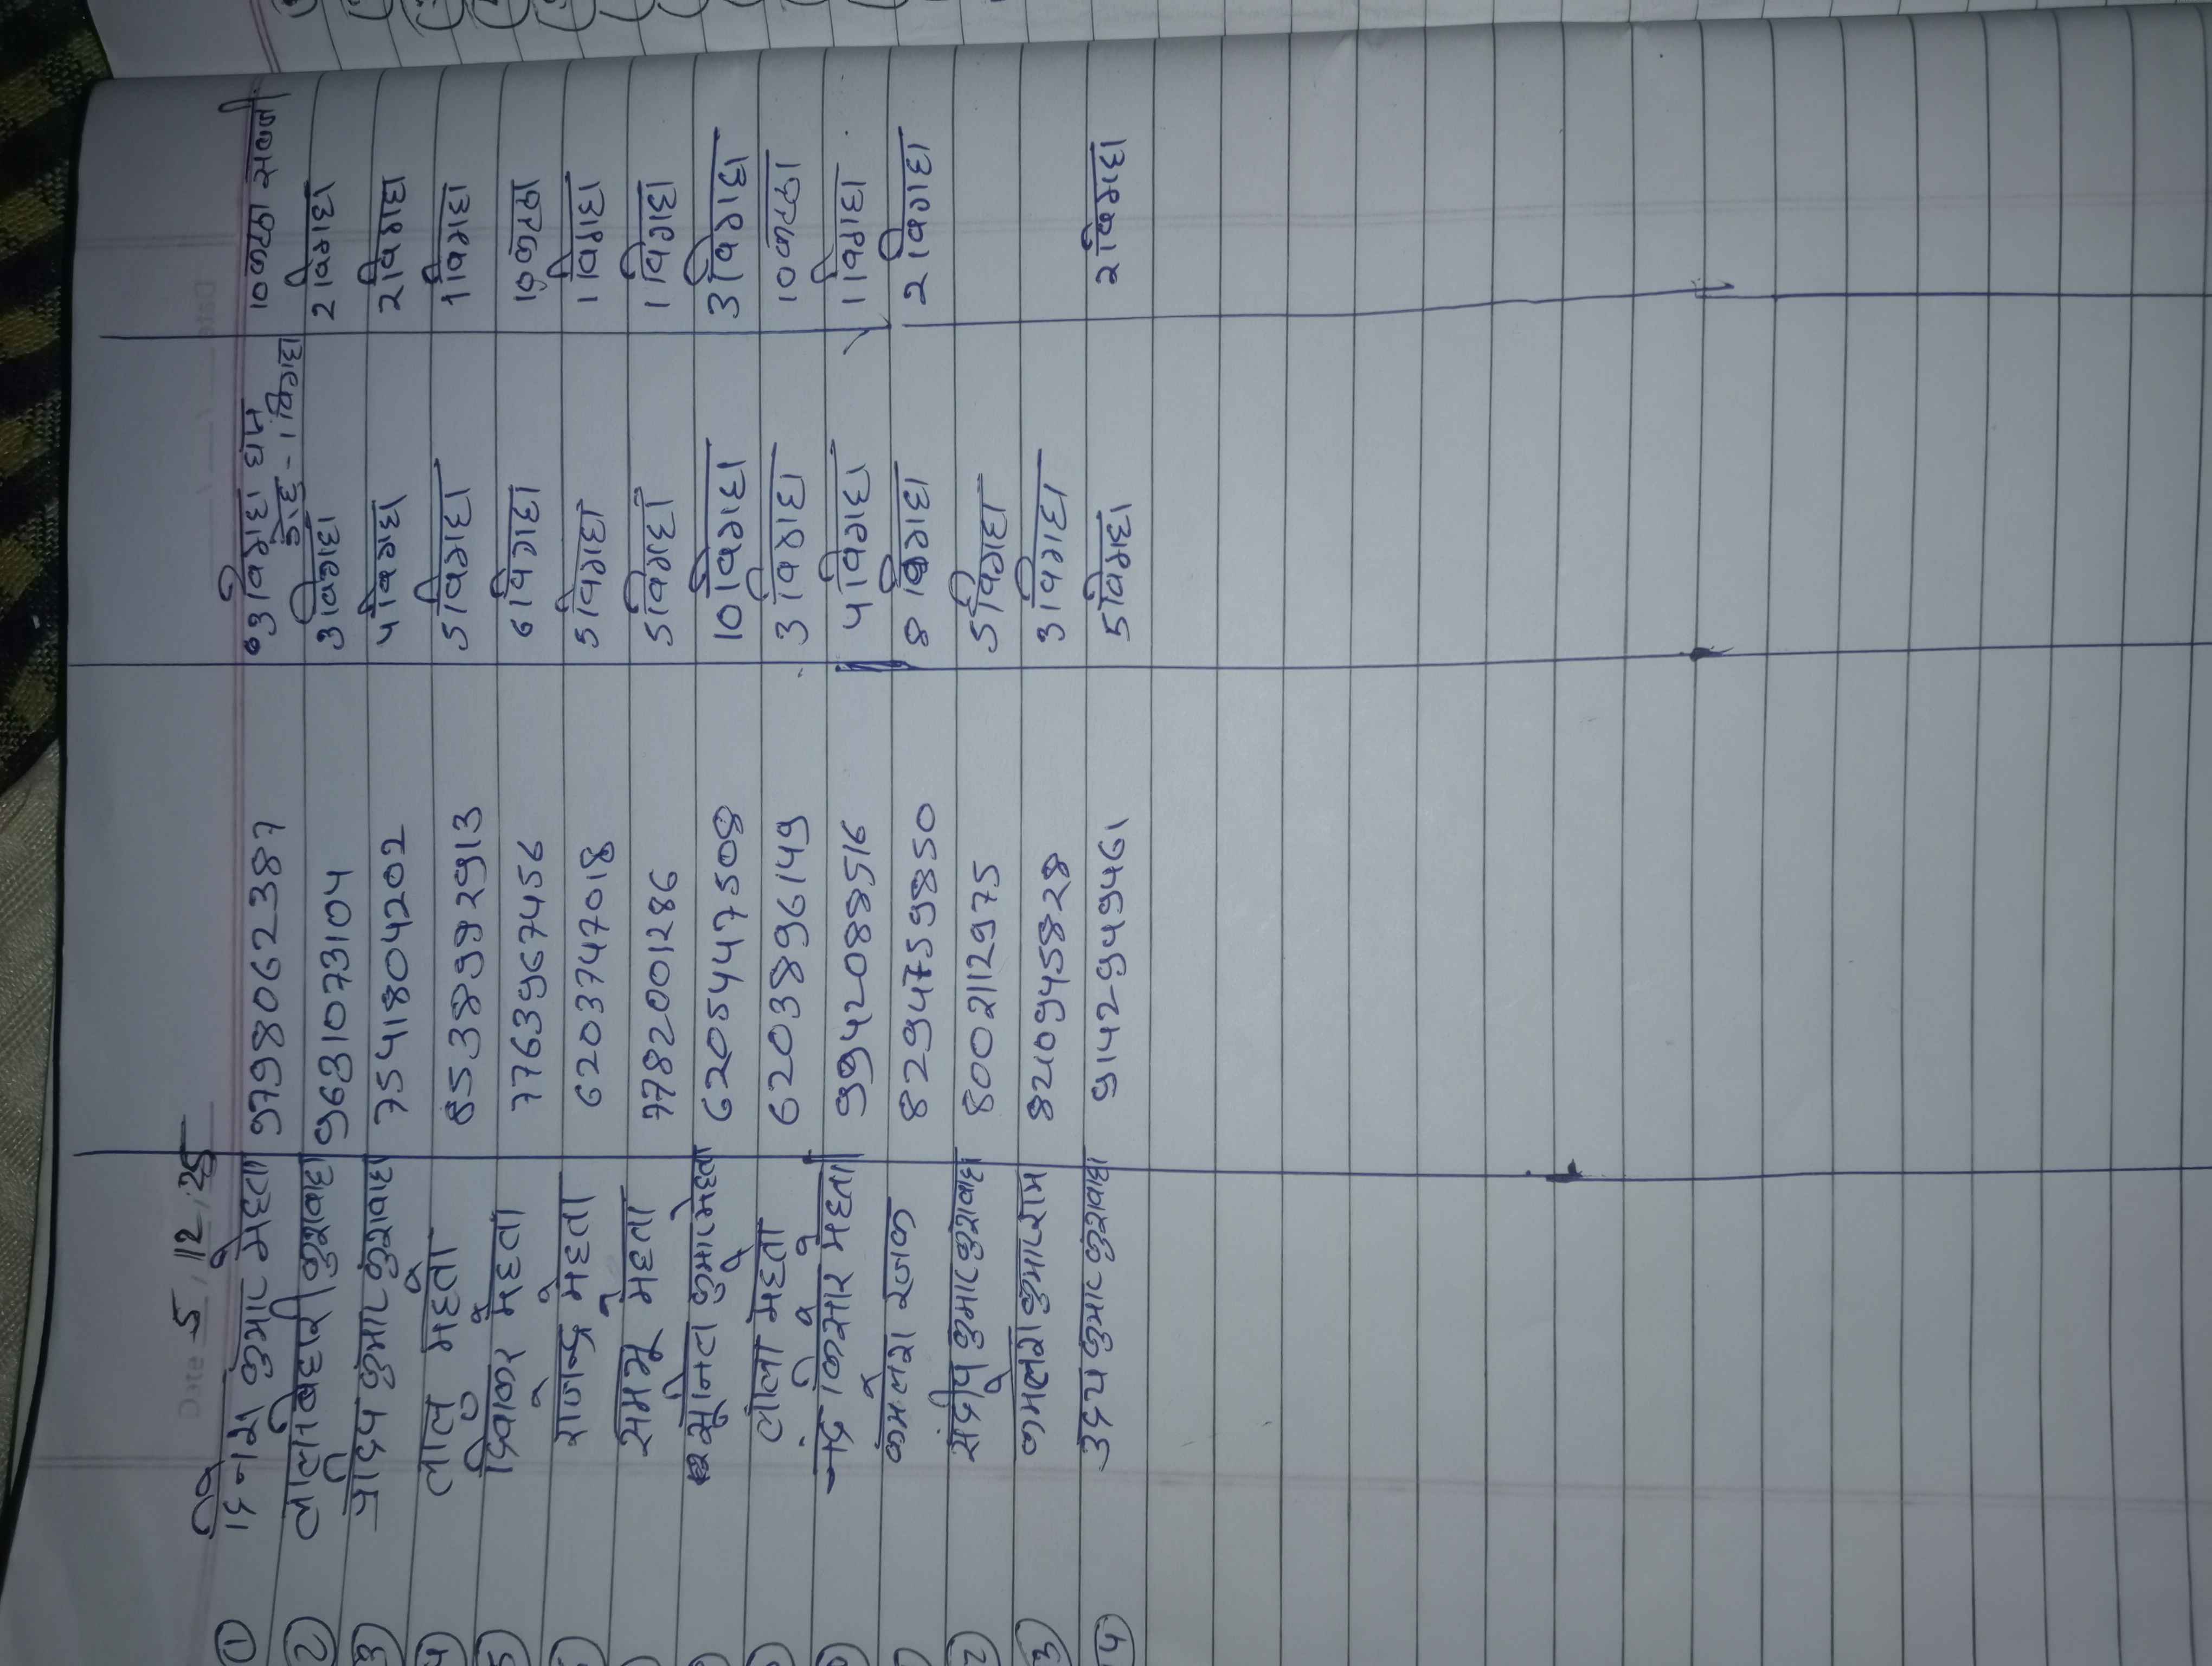 Date 5/12/25
① दिनेश कुमार मेहता 9798062387 03 विगाहा धान 10 कठा सब्जी
डाड़ - 1 विगाहा
② लालबिहारी कुशवाहा 9631073104 3 विगाहा 2 विगाहा
③ प्रदिप कुमार कुशवाहा 7541804202 4 विगाहा 2 विगाहा
4 लालु मेहता 8538992913 5 विगाहा 1 विगाहा
5 दिवाकर मेहता 7763967456 6 विगाहा 10 कठा
राजेन्द्र मेहता 6203747018 5 विगाहा 1 विगाहा
सम्भू मेहता 7782001286 5 विगाहा 1 विगाहा
कुमार मेहता 6205447508 10 विगाहा 3 विगाहा
लीला मेहता 6203896149 3 विगाहा 10 कठा
नंद किशोर मेहता 9942088516 4 विगाहा 1 विगाहा
कमलेश रजक 8294759850 8 विगाहा 2 विगाहा
2 संदीप कुमार कुशवाहा 8002112975 5 विगाहा
3 कमलेश कुमार राम 8210945828 3 विगाहा
4 उदय कुमार कुशवाहा 9142949461 5 विगाहा 2 विगाहा